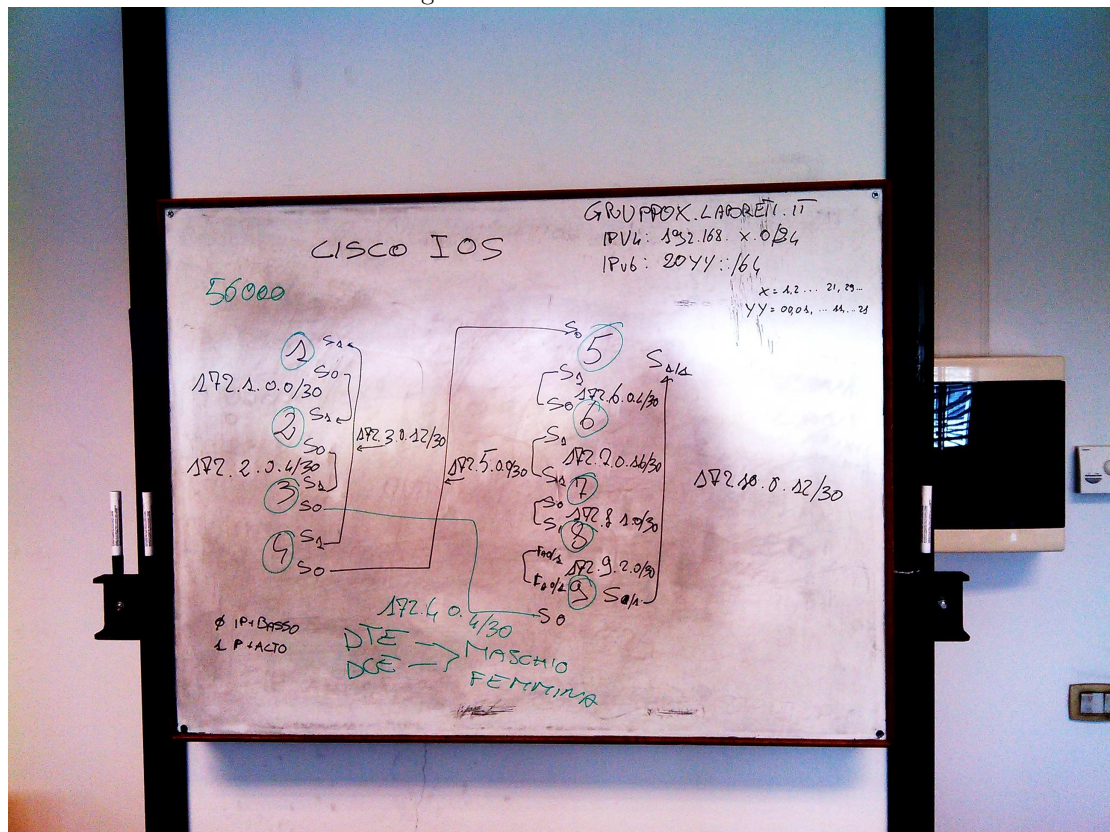 CISCO IOS
GRUPPOX.LABORETI.IT
IPV4: 192.168.x.0/24
IPv6: 20YY::/64
X = 1,2 ... 21, 29...
YY = 00,01, ... 11, ... 21
56000
1 S1
S0
172.1.0.0/30
2 S1
S0
172.2.0.4/30
3 S1
S0
4 S1
S0
172.3.0.12/30
172.5.0.0/30
S0 5
S1
172.6.0.4/30
S0 6
S1
172.7.0.16/30
S1 7
S0
172.8.1.0/30
S1 8
172.9.2.0/30
9 S0/1
S0
S1/1
172.10.0.12/30
172.4.0.4/30
0 IP+BASSO
1 IP+ALTO
DTE
DCE
MASCHIO
FEMMINA